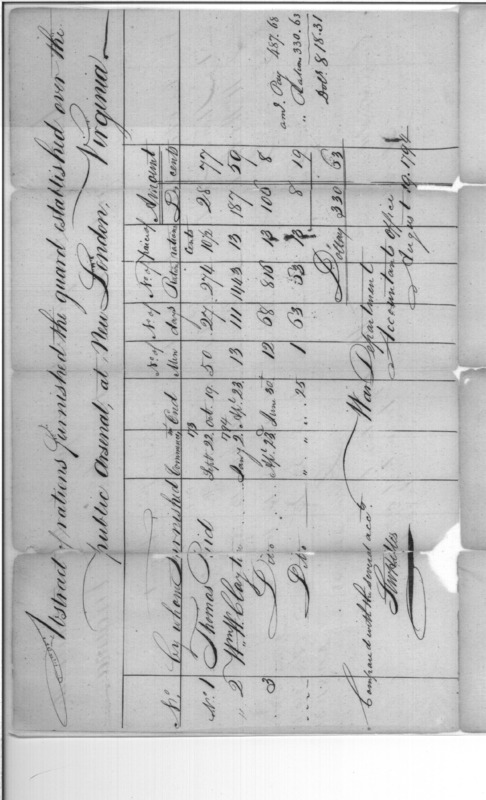 Abstract of rations furnished the guard established over the
public Arsenal, at New London, Virginia.
No. by whom furnished Commence End No. of Men No. of days No. of Rations Price of rations Amount D. cents
93 cents
No. 1 Thomas Reid Sept 22 Oct. 19. 50 27 274 10½ 28 77
1794
" 2 Wm. W. Clayto Jany 2. Apl. 23. 13 111 1443 13 187 59
3 Ditto Apl. 23. June 30th 12 68 816 13 106 8
" Ditto " " " 25 1 63 63 13 8 19
Dollars 330 63
amt. Pay 487.68
" Rations 330.63
Dols. 818.31
War Department
Accountants Office
August 19. 1794
Compared with the several accts.